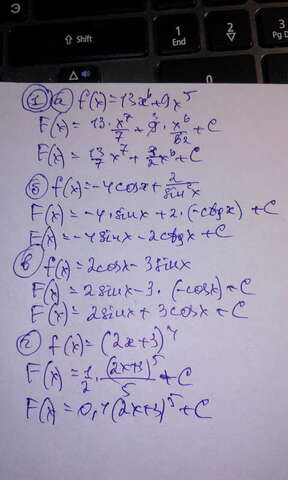 Shift
1
End
2
3
Pg D
① а) f(x) = 13x⁶ + 9x⁵
F(x) = 13 · x⁷/7 + 9 · x⁶/6 + C
F(x) = 13/7 x⁷ + 3/2 x⁶ + C
б) f(x) = -4cosx + 2/sin²x
F(x) = -4 · sinx + 2 · (-ctgx) + C
F(x) = -4sinx - 2ctgx + C
в) f(x) = 2cosx - 3sinx
F(x) = 2sinx - 3 · (-cosx) + C
F(x) = 2sinx + 3cosx + C
г) f(x) = (2x+3)⁴
F(x) = 1/2 · (2x+3)⁵/5 + C
F(x) = 0,1(2x+3)⁵ + C